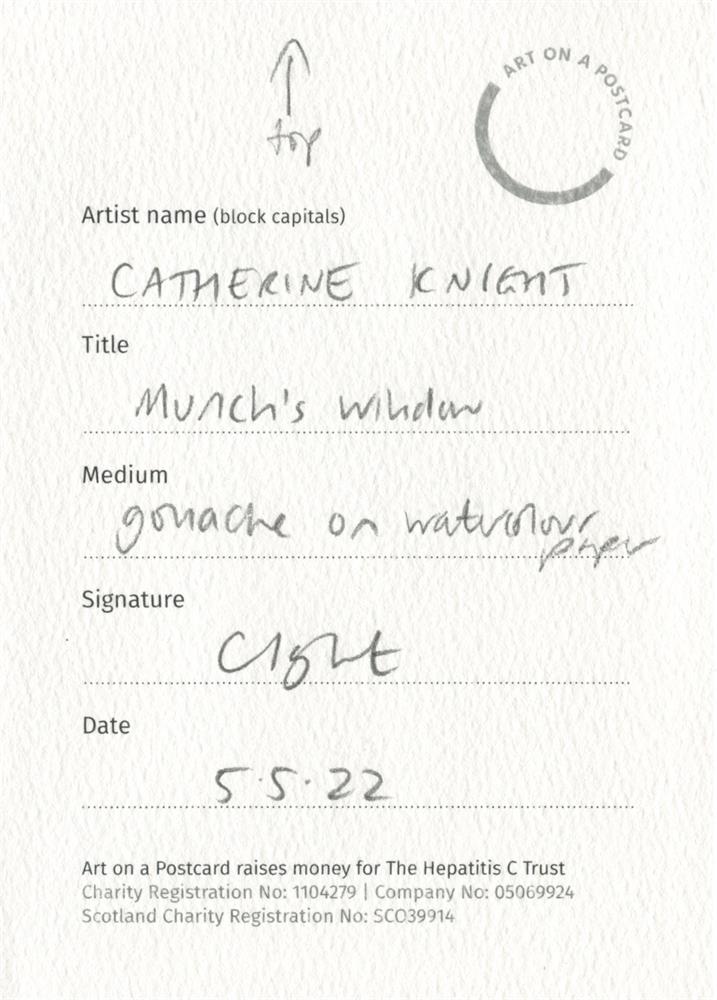 top
ART ON A POSTCARD
Artist name (block capitals)
CATHERINE KNIGHT
Title
Munch's window
Medium
gouache on watercolour
paper
Signature
Date
5.5.22
Art on a Postcard raises money for The Hepatitis C Trust
Charity Registration No: 1104279 | Company No: 05069924
Scotland Charity Registration No: SCO39914